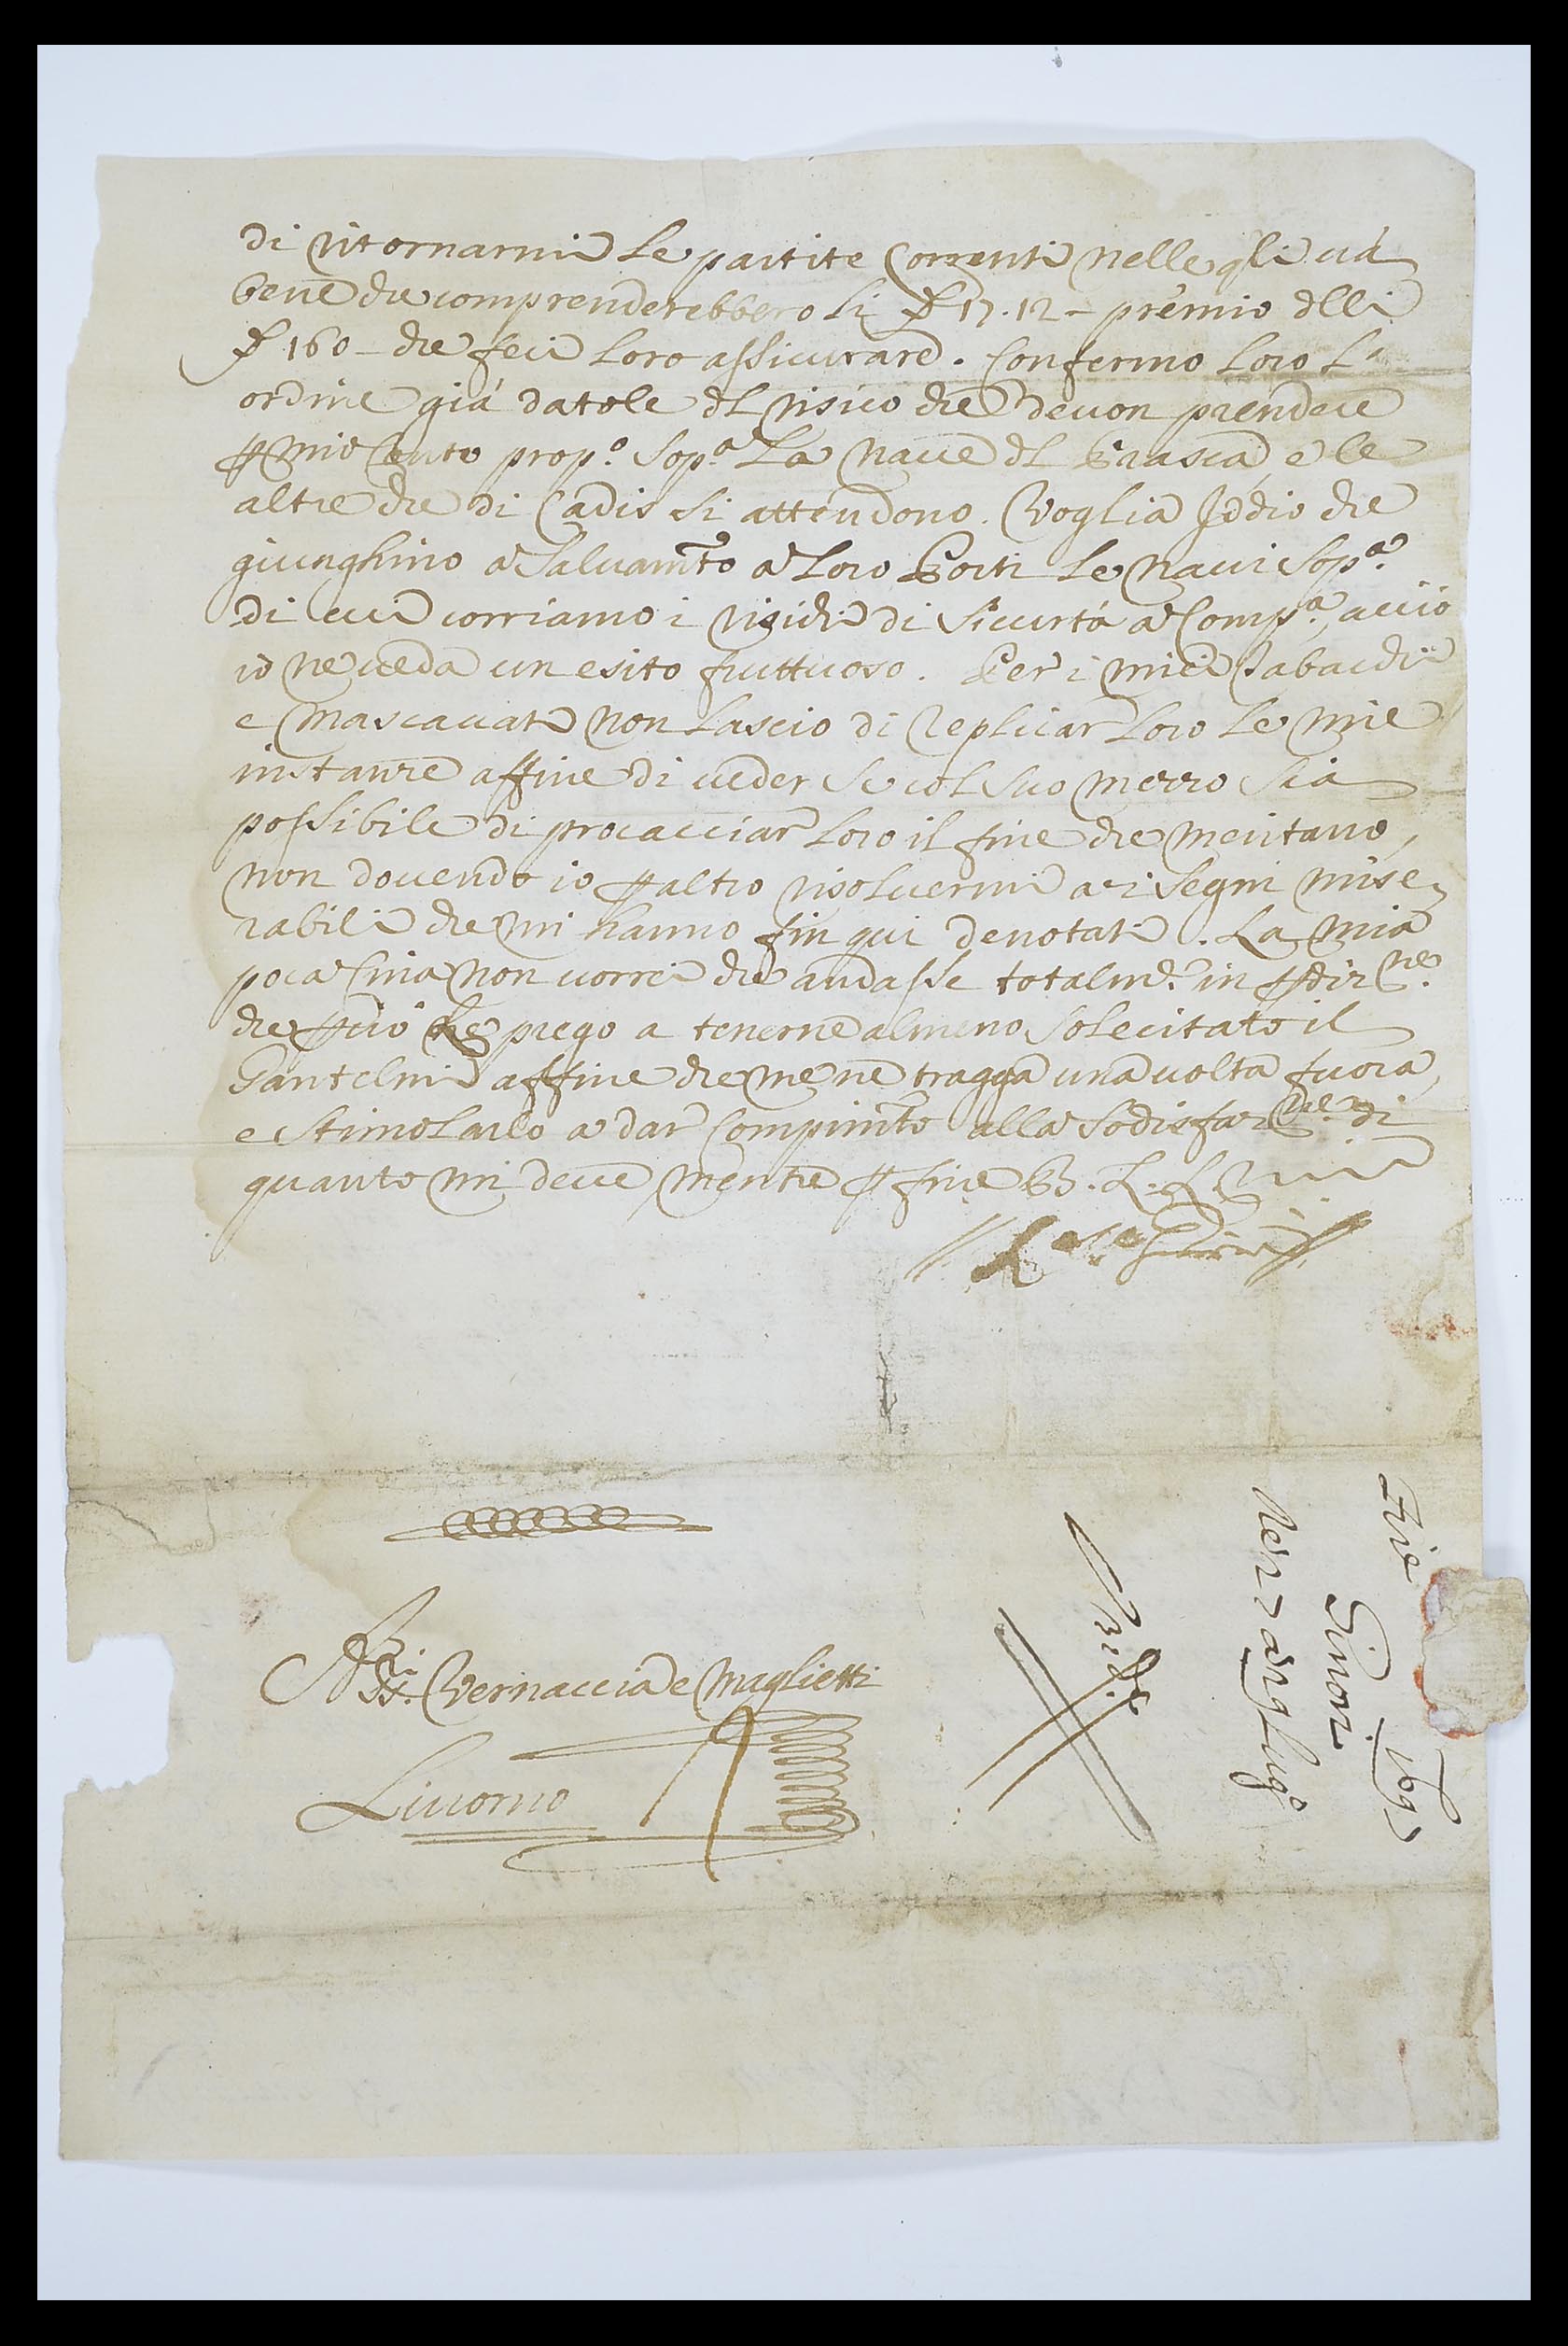 di ritornarmi le partite correnti nelle qli và
bene che comprenderebbero li ₽ 17.12 – premio dlli
₽ 160 – che feci loro assicurare. Confermo loro l'
ordine già datole dl risico che devon prendere
ꝑ mio conto prop.º sop.ª la nave dl Brasca, e le
altre che di Cadis si attendono. Voglia Iddio che
giunghino a salvam.to a loro Porti le navi sop.ª
di cui corriamo i risichi di sicurtà a Comp.ª, acciò
io ne veda un esito fruttuoso. Per i miei Tabacchi
e Mascavati non lascio di replicar loro le mie
instanze affine di veder se col suo mezzo sia
possibile di procacciar loro il fine che meritano,
non dovendo io ꝑ altro risolvermi a i segni mise-
rabili che mi hanno fin qui denotati. La mia
poca Cina non vorrei che andasse totalm.e in ꝑdiz.ne
che ꝑciò le prego a tenerne almeno solecitato il
Gantelmi affine che me ne tragga una volta fuora,
e stimolarlo a dar compim.to alla sodisfaz.ne di
quanto mi deve mentre ꝑ fine B. L. L.
SS.ri Vernaccia e Maglietti
Livorno
1697